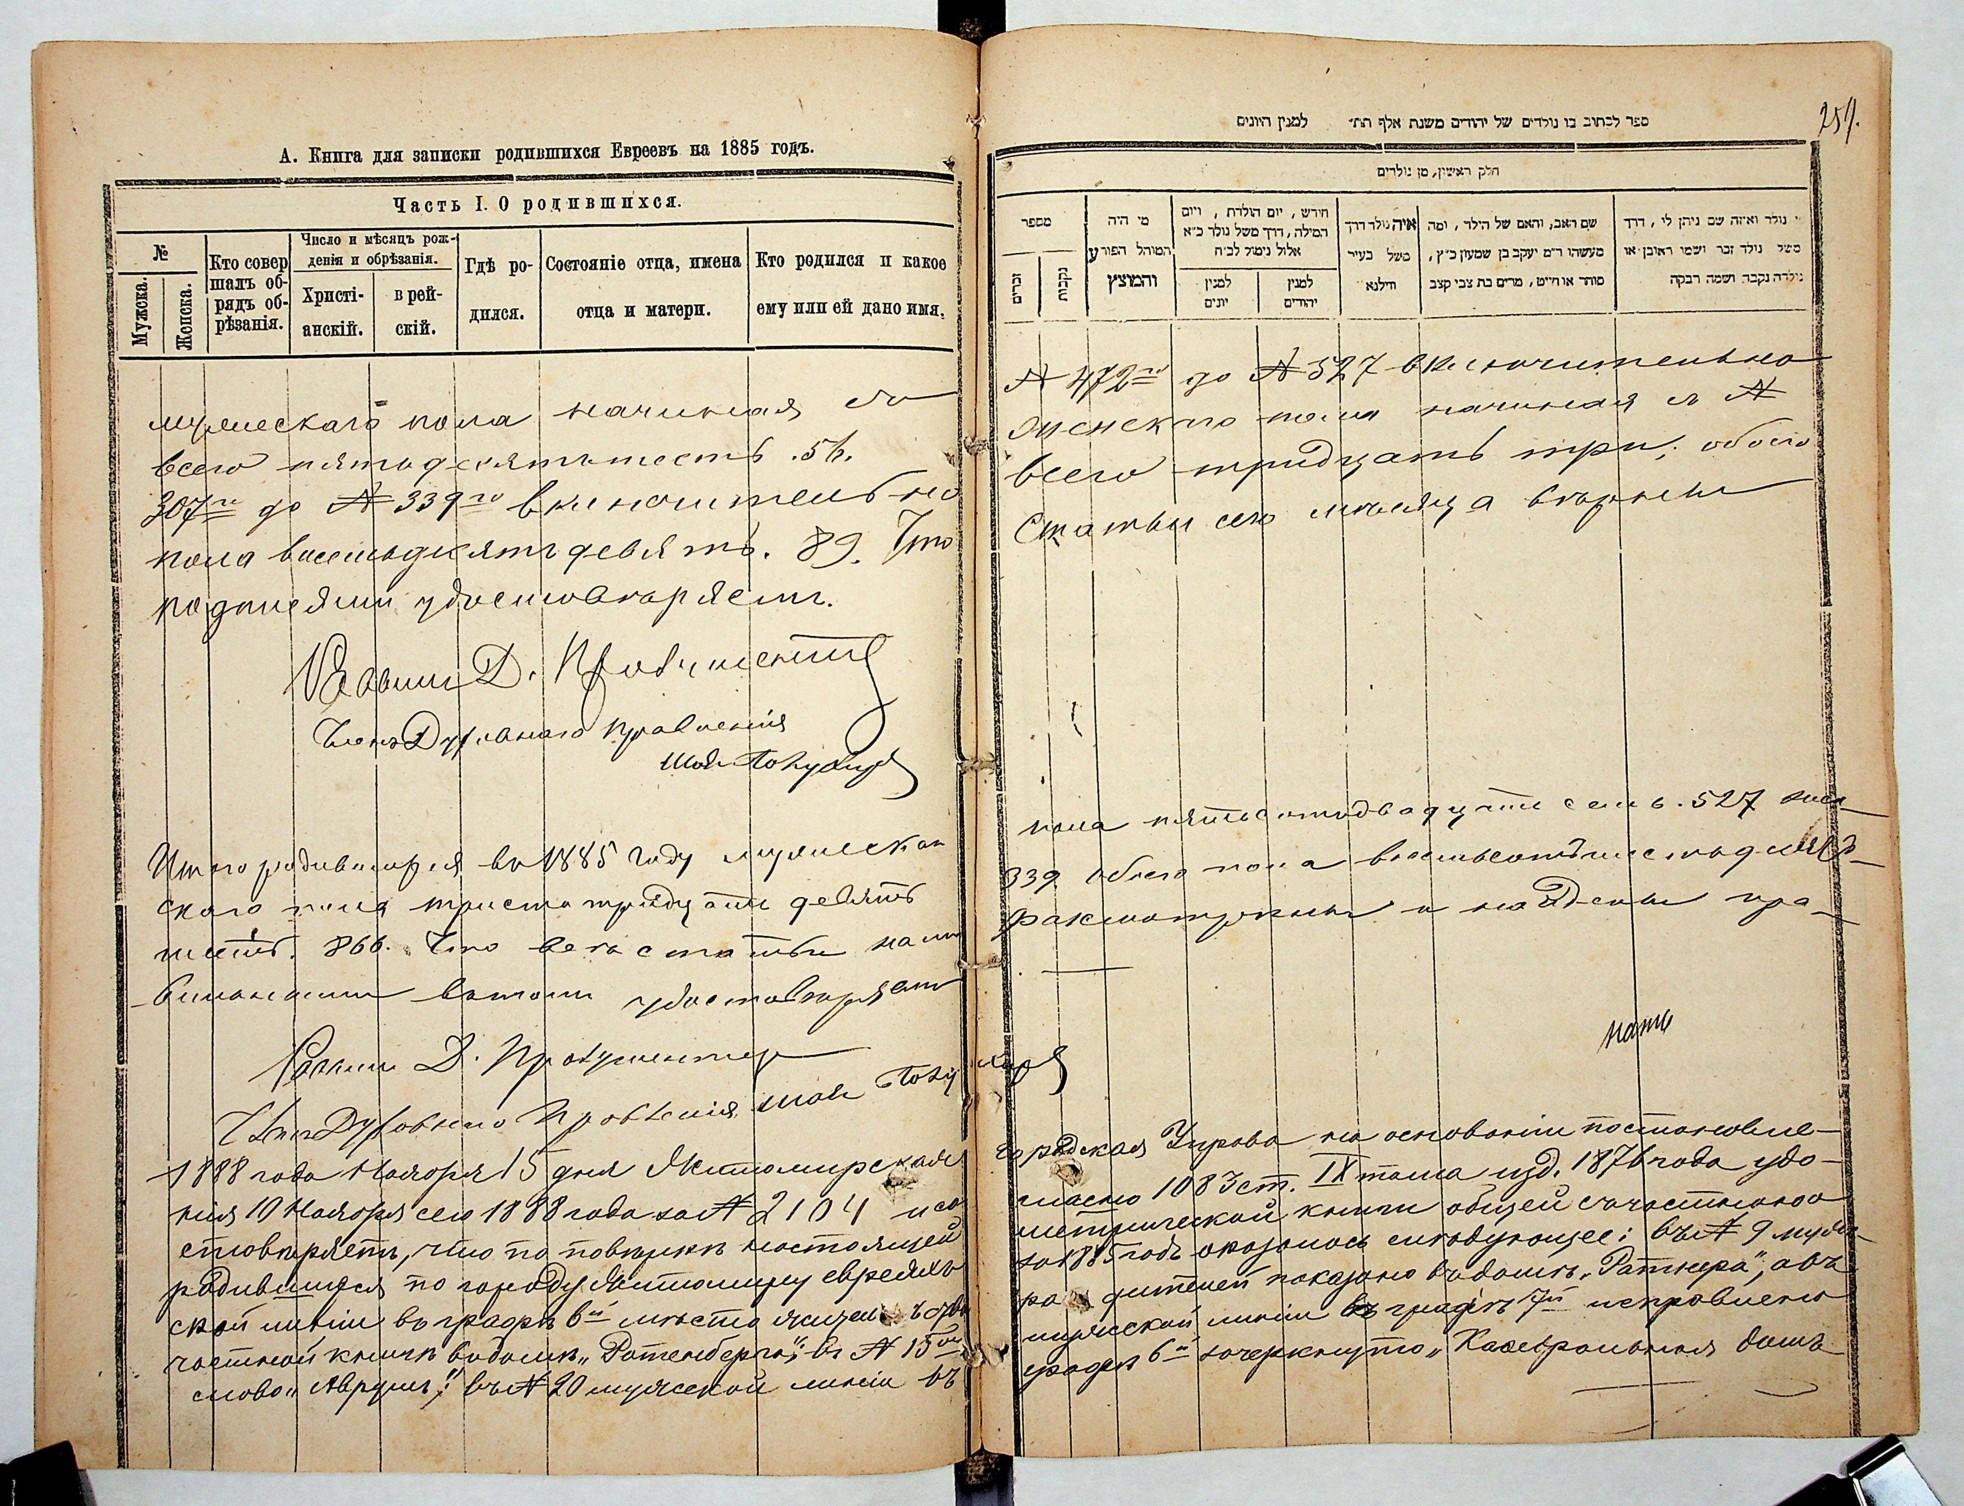 А. Книга для записки родившихся Евреевъ на 1885 годъ.
Часть I. О родившихся.
№
Мужска.
Женска.
Кто совер
шалъ об-
рядъ об-
рѣзанія.
Число и мѣсяцъ рож-
денія и обрѣзанія.
Христі-
анскій.
в рей-
скій.
Гдѣ ро-
дился.
Состояніе отца, имена
отца и матери.
Кто родился и какое
ему или ей дано имя.
мужескаго пола начиная съ
всего пятьдесятъ шесть. 56.
307го до № 339го включительно
пола восемьдесятъ девять. 89. Что
подписями удостовѣряемъ.
Раввинъ Д.
Членъ Духовнаго Правленія
Итого родившихся въ 1885 году мужеска
скаго пола триста тридцать девять
шесть. 866. Что все статьи нами
вильными въ томъ удостовѣряемъ
Раввинъ Д.
Членъ Духовнаго Правленія
1888 года Ноября 15 дня Житомирская
нія 10 Ноября сего 1888 года за № 2104 и со
стовѣряетъ, что по повѣркѣ настоящей
родившихся по городу Житомиру евреяхъ
ской линіи въ графѣ 6й мѣсто жител
частной книгѣ въ домѣ „Ротенберга“, въ № 15
слово „Аврумъ“, въ № 20 мужеской линіи въ
259.
ספר לכתוב בו נולדים של יהודים משנת אלף תת׳ למנין היונים
חלק ראשון, מן נולדים
מספר
זכרים
נקבות
מי היה
המוהל הפורע
והמוצץ
חודש, יום הולדת, ויום
המילה, דרך משל נולד כ״א
אלול נימול לכ״ח
למנין
יונים
למנין
יהודים
איה נולד דרך
משל בעיר
ווילנא
שם האב, והאם של הילד, ומה
מעשהו ר״מ יעקב בן שמעון כ״ץ,
סוחר או חייט, מרים בת צבי קצב
מי נולד ואיזה שם ניתן לו, דרך
משל נולד זכר ושמו ראובן או
נולדה נקבה ושמה רבקה
№ 472го до № 527 включительно
женскаго пола начиная съ №
всего тридцать три, обоего
Статьи сего мѣсяца вѣрны
пола пятьсотъ двадцать семь. 527 жен
339 обоего пола восемьсотъ шестьдесятъ
разсмотрены и найдены пра-
городская Управа на основаніи постановле-
гласно 1083 ст. IX тома изд. 1876 года удо-
метрической книги общей съ частною о
за 1885 годъ оказалось слѣдующее: въ № 9 муже-
ро дителей показано въ домѣ „Ратнера“, а въ
мужеской линіи въ графѣ 7й исправлено
графѣ 6й зачеркнуто „Кафедральная домъ